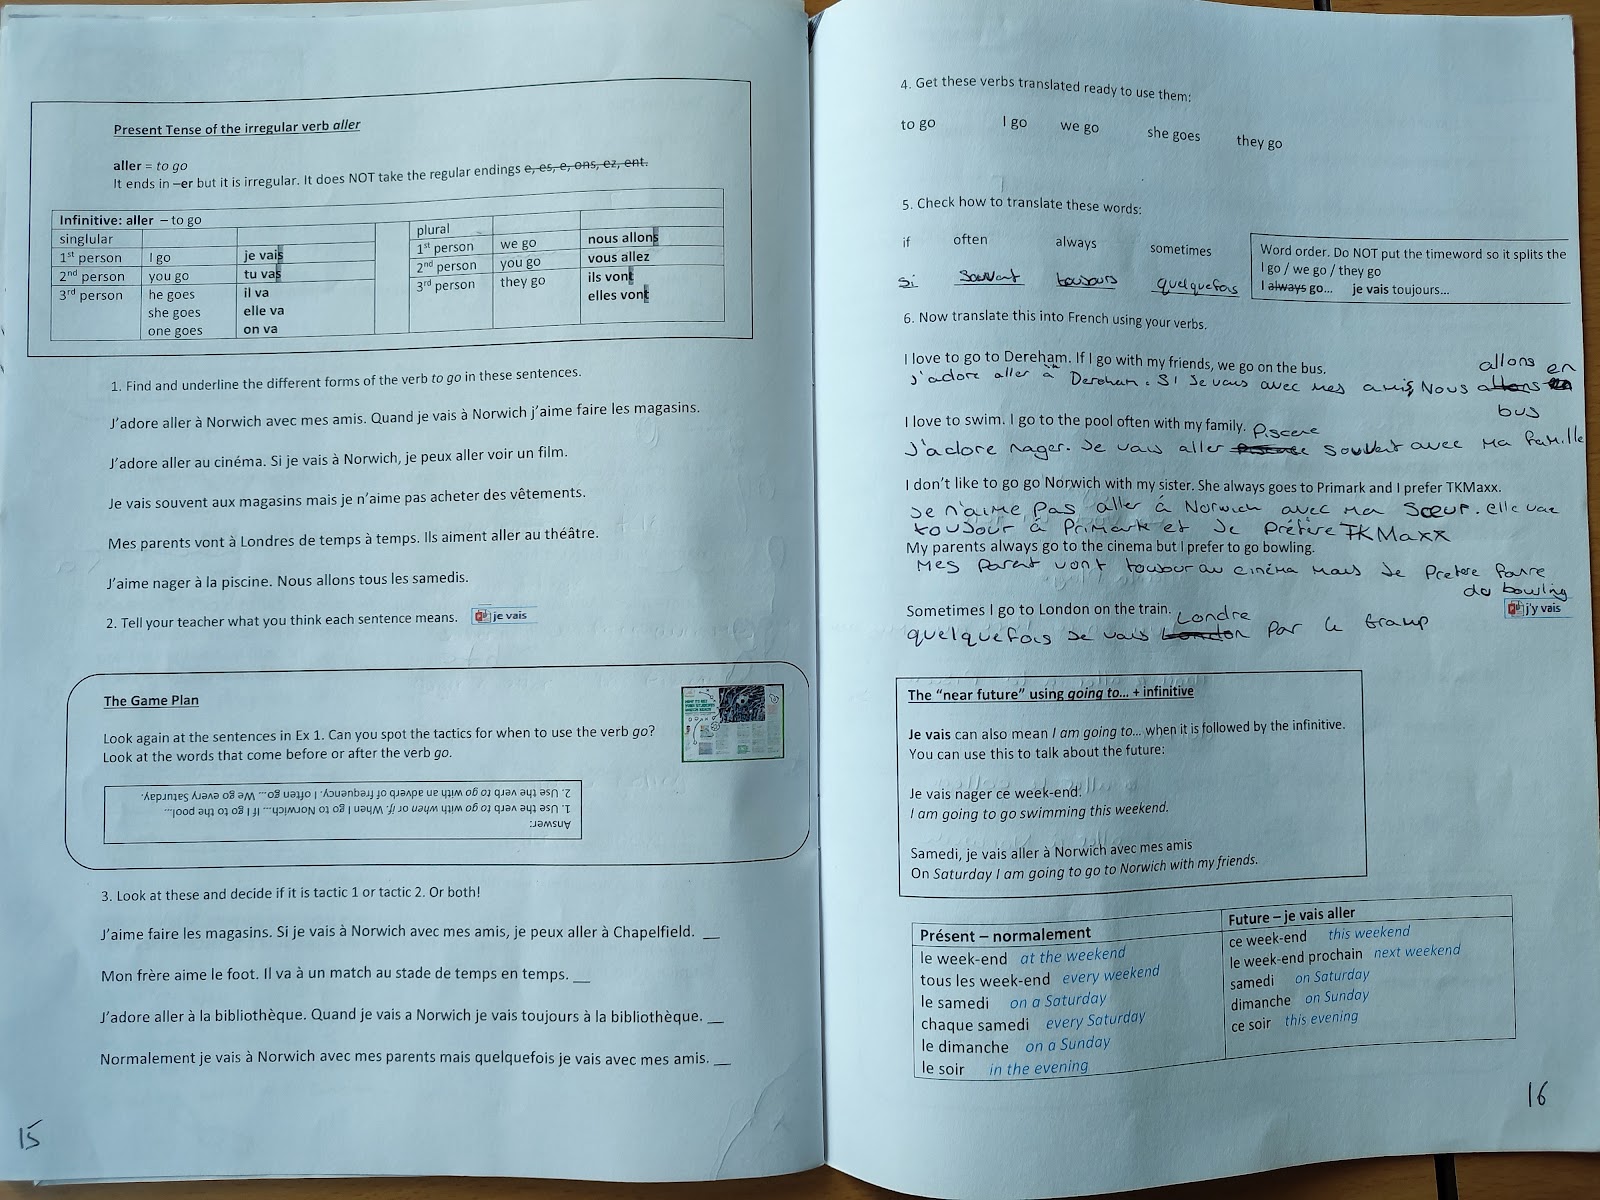 Present Tense of the irregular verb aller
aller = to go
It ends in –er but it is irregular. It does NOT take the regular endings e, es, e, ons, ez, ent.
Infinitive: aller – to go
singlular
1st person I go je vais
2nd person you go tu vas
3rd person he goes il va
she goes elle va
one goes on va
plural
1st person we go nous allons
2nd person you go vous allez
3rd person they go ils vont
elles vont
1. Find and underline the different forms of the verb to go in these sentences.
J'adore aller à Norwich avec mes amis. Quand je vais à Norwich j'aime faire les magasins.
J'adore aller au cinéma. Si je vais à Norwich, je peux aller voir un film.
Je vais souvent aux magasins mais je n'aime pas acheter des vêtements.
Mes parents vont à Londres de temps à temps. Ils aiment aller au théâtre.
J'aime nager à la piscine. Nous allons tous les samedis.
2. Tell your teacher what you think each sentence means. je vais
The Game Plan
Look again at the sentences in Ex 1. Can you spot the tactics for when to use the verb go?
Look at the words that come before or after the verb go.
Answer:
1. Use the verb to go with when or if. When I go to Norwich… If I go to the pool…
2. Use the verb to go with an adverb of frequency. I often go… We go every Saturday.
3. Look at these and decide if it is tactic 1 or tactic 2. Or both!
J'aime faire les magasins. Si je vais à Norwich avec mes amis, je peux aller à Chapelfield. __
Mon frère aime le foot. Il va à un match au stade de temps en temps. __
J'adore aller à la bibliothèque. Quand je vais a Norwich je vais toujours à la bibliothèque. __
Normalement je vais à Norwich avec mes parents mais quelquefois je vais avec mes amis. __
15
4. Get these verbs translated ready to use them:
to go I go we go she goes they go
5. Check how to translate these words:
if often always sometimes
si souvent toujours quelquefois
Word order. Do NOT put the timeword so it splits the
I go / we go / they go
I always go… je vais toujours…
6. Now translate this into French using your verbs.
I love to go to Dereham. If I go with my friends, we go on the bus.
J'adore aller à Dereham. Si Je vais avec mes amis, Nous allons en
bus
I love to swim. I go to the pool often with my family.
Piscene
J'adore nager. Je vais aller souvent avec ma famille
I don't like to go go Norwich with my sister. She always goes to Primark and I prefer TKMaxx.
Je n'aime pas aller à Norwich avec ma sœur. elle vae
toujour à Primark et Je préfère TKMaxx
My parents always go to the cinema but I prefer to go bowling.
Mes parent vont toujour au cinéma mais Je Prefere faire
du bowling
j'y vais
Sometimes I go to London on the train.
Londre
quelquefois Je vais London par le
The "near future" using going to… + infinitive
Je vais can also mean I am going to… when it is followed by the infinitive.
You can use this to talk about the future:
Je vais nager ce week-end.
I am going to go swimming this weekend.
Samedi, je vais aller à Norwich avec mes amis
On Saturday I am going to go to Norwich with my friends.
Présent – normalement
le week-end at the weekend
tous les week-end every weekend
le samedi on a Saturday
chaque samedi every Saturday
le dimanche on a Sunday
le soir in the evening
Future – je vais aller
ce week-end this weekend
le week-end prochain next weekend
samedi on Saturday
dimanche on Sunday
ce soir this evening
16